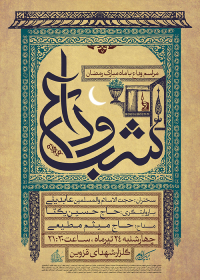 مراسم وداع با ماه مبارک رمضان
شب وداع
سخنران: حجت الاسلام والمسلمین عابدینی
حاج حسین یکتا
مداح: حاج میثم مطیعی
چهارشنبه ۲۴ تیرماه، ساعت ۲۱:۳۰
گلزار شهدای قزوین